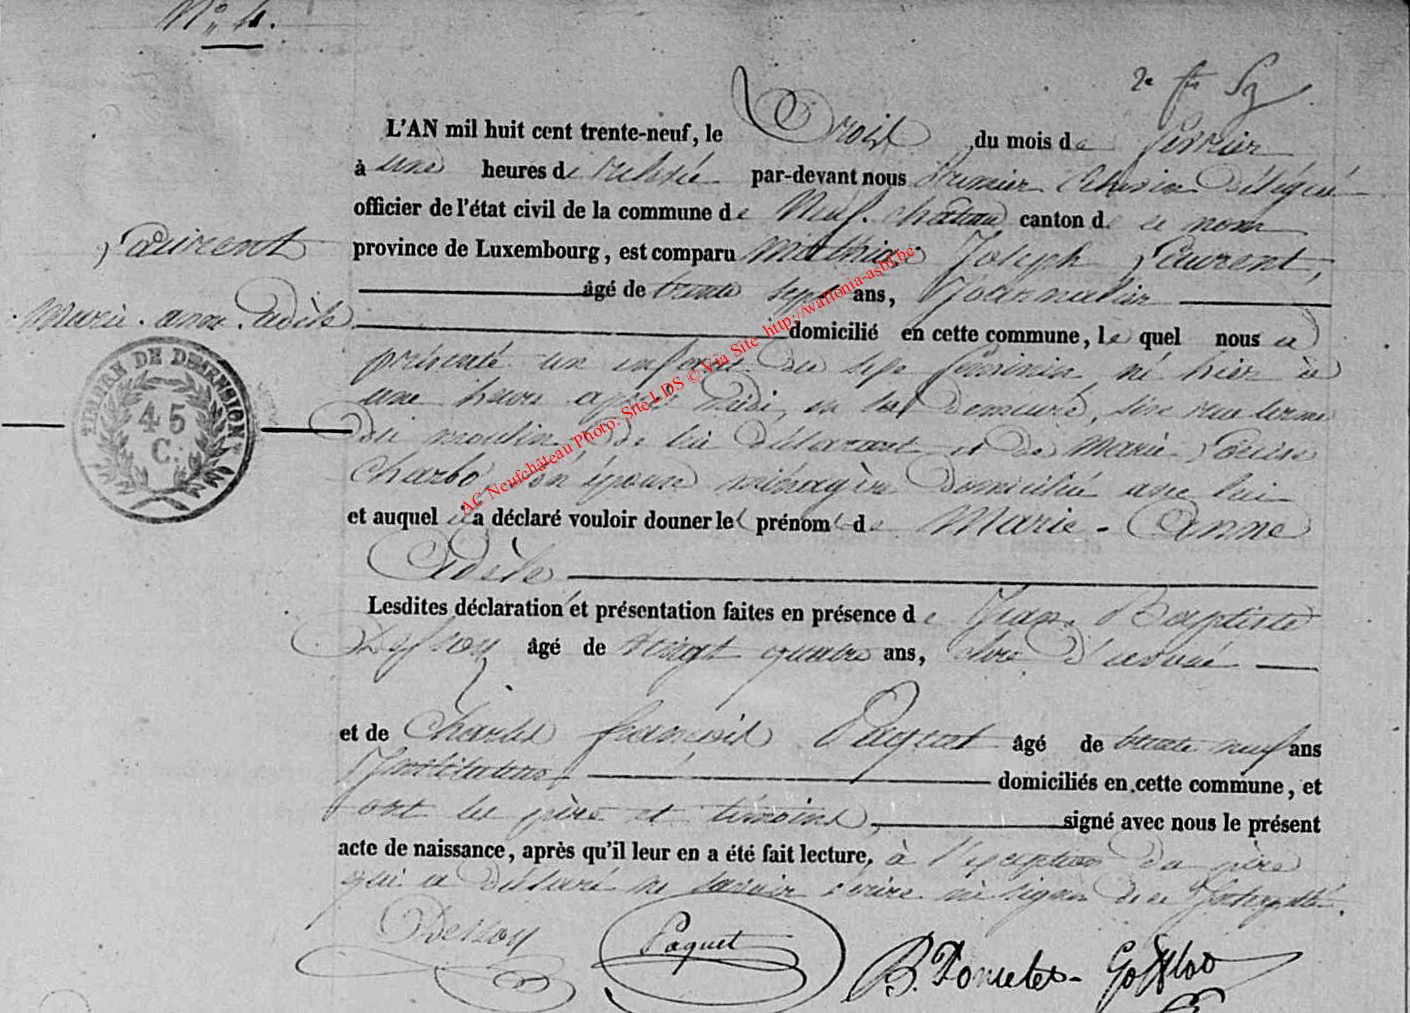 N° 4.
2e
L'AN mil huit cent trente-neuf, le trois du mois de février
à une heures de relevée par-devant nous premier Echevin délégué
officier de l'état civil de la commune de Neufchateau canton de ce nom
Laurent
province de Luxembourg, est comparu Mathieu Joseph Laurent,
âgé de trente sept ans, Journalier
Marie-anne-adèle
domicilié en cette commune, le quel nous a
présenté un enfant du sexe féminin né hier à
une heure après midi, en sa demeure, sise
du moulin, de lui déclarant et de Marie Louise
son épouse ménagère domiciliée avec lui
et auquel il a déclaré vouloir donner les prénoms de Marie-Anne
Adèle
Lesdites déclaration et présentation faites en présence de Jean Baptiste
Dessoy âgé de vingt quatre ans, clerc d'avoué
et de Charles françois Paquet âgé de trente neuf ans
Instituteur, domiciliés en cette commune, et
ont les père et témoins, signé avec nous le présent
acte de naissance, après qu'il leur en a été fait lecture, à l'exception du père
qui a déclaré ne savoir écrire ni signer de ce
Dessoy Paquet
TIMBRE DE DIMENSION
45
C.
AC Neufchâteau Photo: Site LDS © Via Site http://wallonia-asbl.be